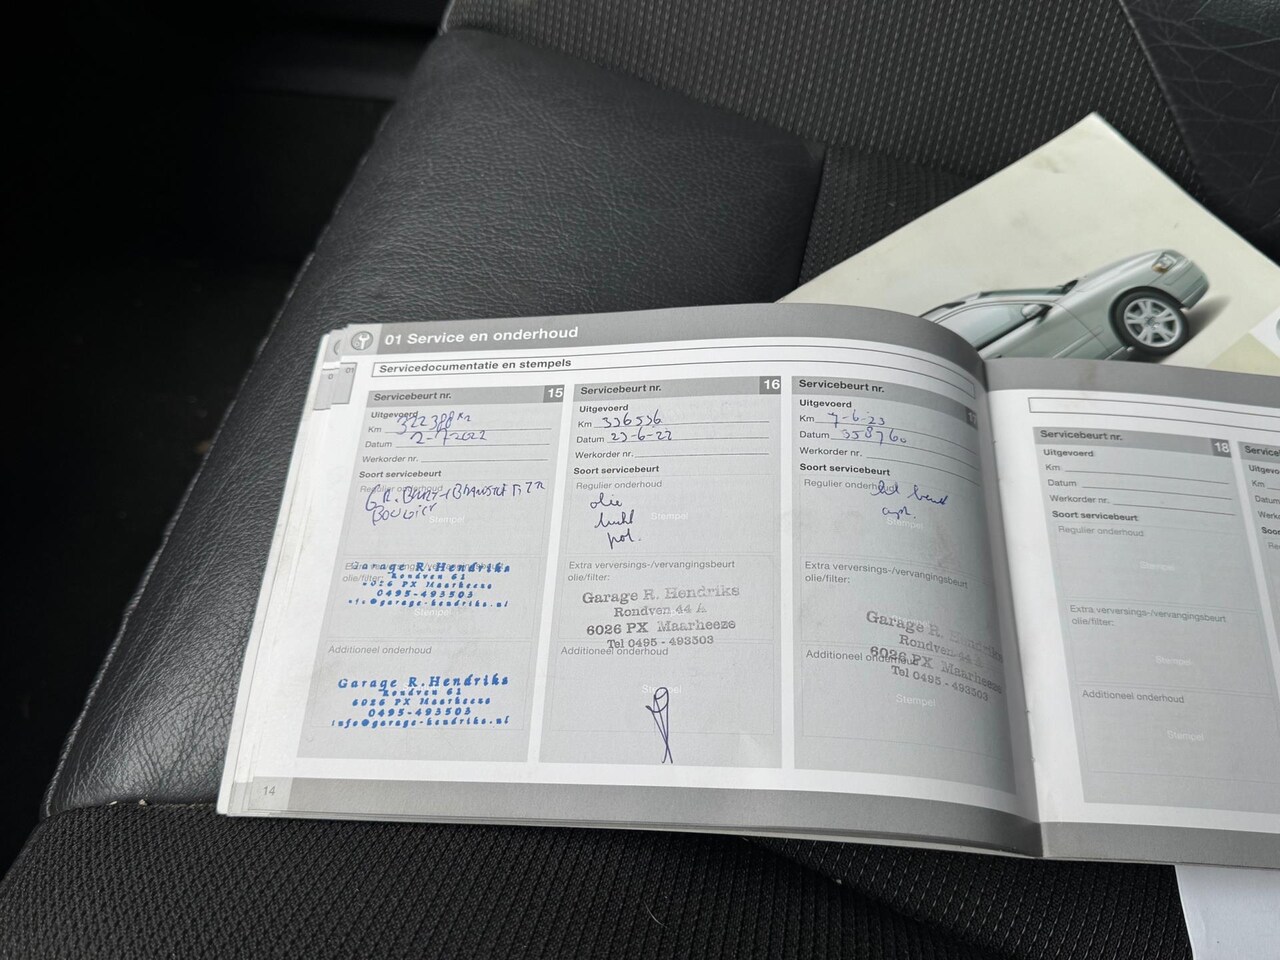 01 Service en onderhoud
Servicedocumentatie en stempels
Servicebeurt nr. 15
Uitgevoerd
Km 322388
Datum 2-7-2022
Werkorder nr.
Soort servicebeurt
Regulier onderhoud
GR. BEURT
BOUGIES
Stempel
Extra verversings-/vervangingsbeurt
olie/filter:
Garage R. Hendriks
Rondven 61
6026 PX Maarheeze
0495-493503
info@garage-hendriks.nl
Stempel
Additioneel onderhoud
Garage R. Hendriks
Rondven 61
6026 PX Maarheeze
0495-493503
info@garage-hendriks.nl
Servicebeurt nr. 16
Uitgevoerd
Km 336536
Datum 23-6-22
Werkorder nr.
Soort servicebeurt
Regulier onderhoud
olie
lucht
pol.
Stempel
Extra verversings-/vervangingsbeurt
olie/filter:
Garage R. Hendriks
Rondven 44 A
6026 PX Maarheeze
Tel 0495 - 493503
Additioneel onderhoud
Stempel
Servicebeurt nr. 17
Uitgevoerd
Km 7-6-23
Datum 358760
Werkorder nr.
Soort servicebeurt
Regulier onderhoud
beurt
Stempel
Extra verversings-/vervangingsbeurt
olie/filter:
Garage R. Hendriks
Rondven 44 A
6026 PX Maarheeze
Tel 0495 - 493503
Additioneel onderhoud
Stempel
14
Servicebeurt nr. 18
Uitgevoerd
Km
Datum
Werkorder nr.
Soort servicebeurt
Regulier onderhoud
Stempel
Extra verversings-/vervangingsbeurt
olie/filter:
Stempel
Additioneel onderhoud
Stempel